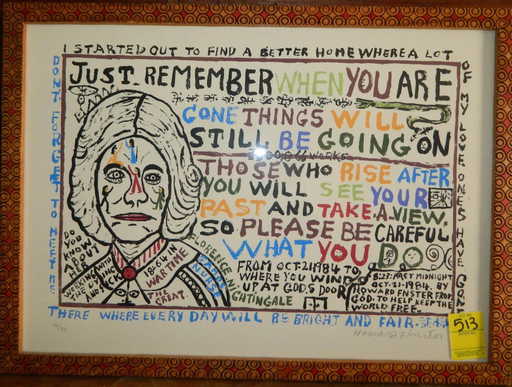 I STARTED OUT TO FIND A BETTER HOME WHERE A LOT
OF MY LOVE ONES HAVE GON
JUST REMEMBER WHEN YOU ARE
GONE THINGS WILL
STILL BE GOING ON
THOSE WHO RISE AFTER
YOU WILL SEE YOUR
PAST AND TAKE A VIEW,
SO PLEASE BE CAREFUL
WHAT YOU DO
FROM OCT-21-1984 TO
WHERE YOU WIND
UP AT GOD,S DOOR
PAST MIDNIGHT
OCT-21-1984. BY
HOWARD FINSTER FROM
GOD. TO HELP KEEP THE
WORLD FREE
DO
YOU
KNOW
ABOUT
THE DYING
AND SICK
1864 IN
WAR TIME
CRIAT
FLORENCE NIGHTINGALE
DONT FORGET TO MEET ME
THERE WHERE EVERY DAY WILL BE BRIGHT AND FAIR
513